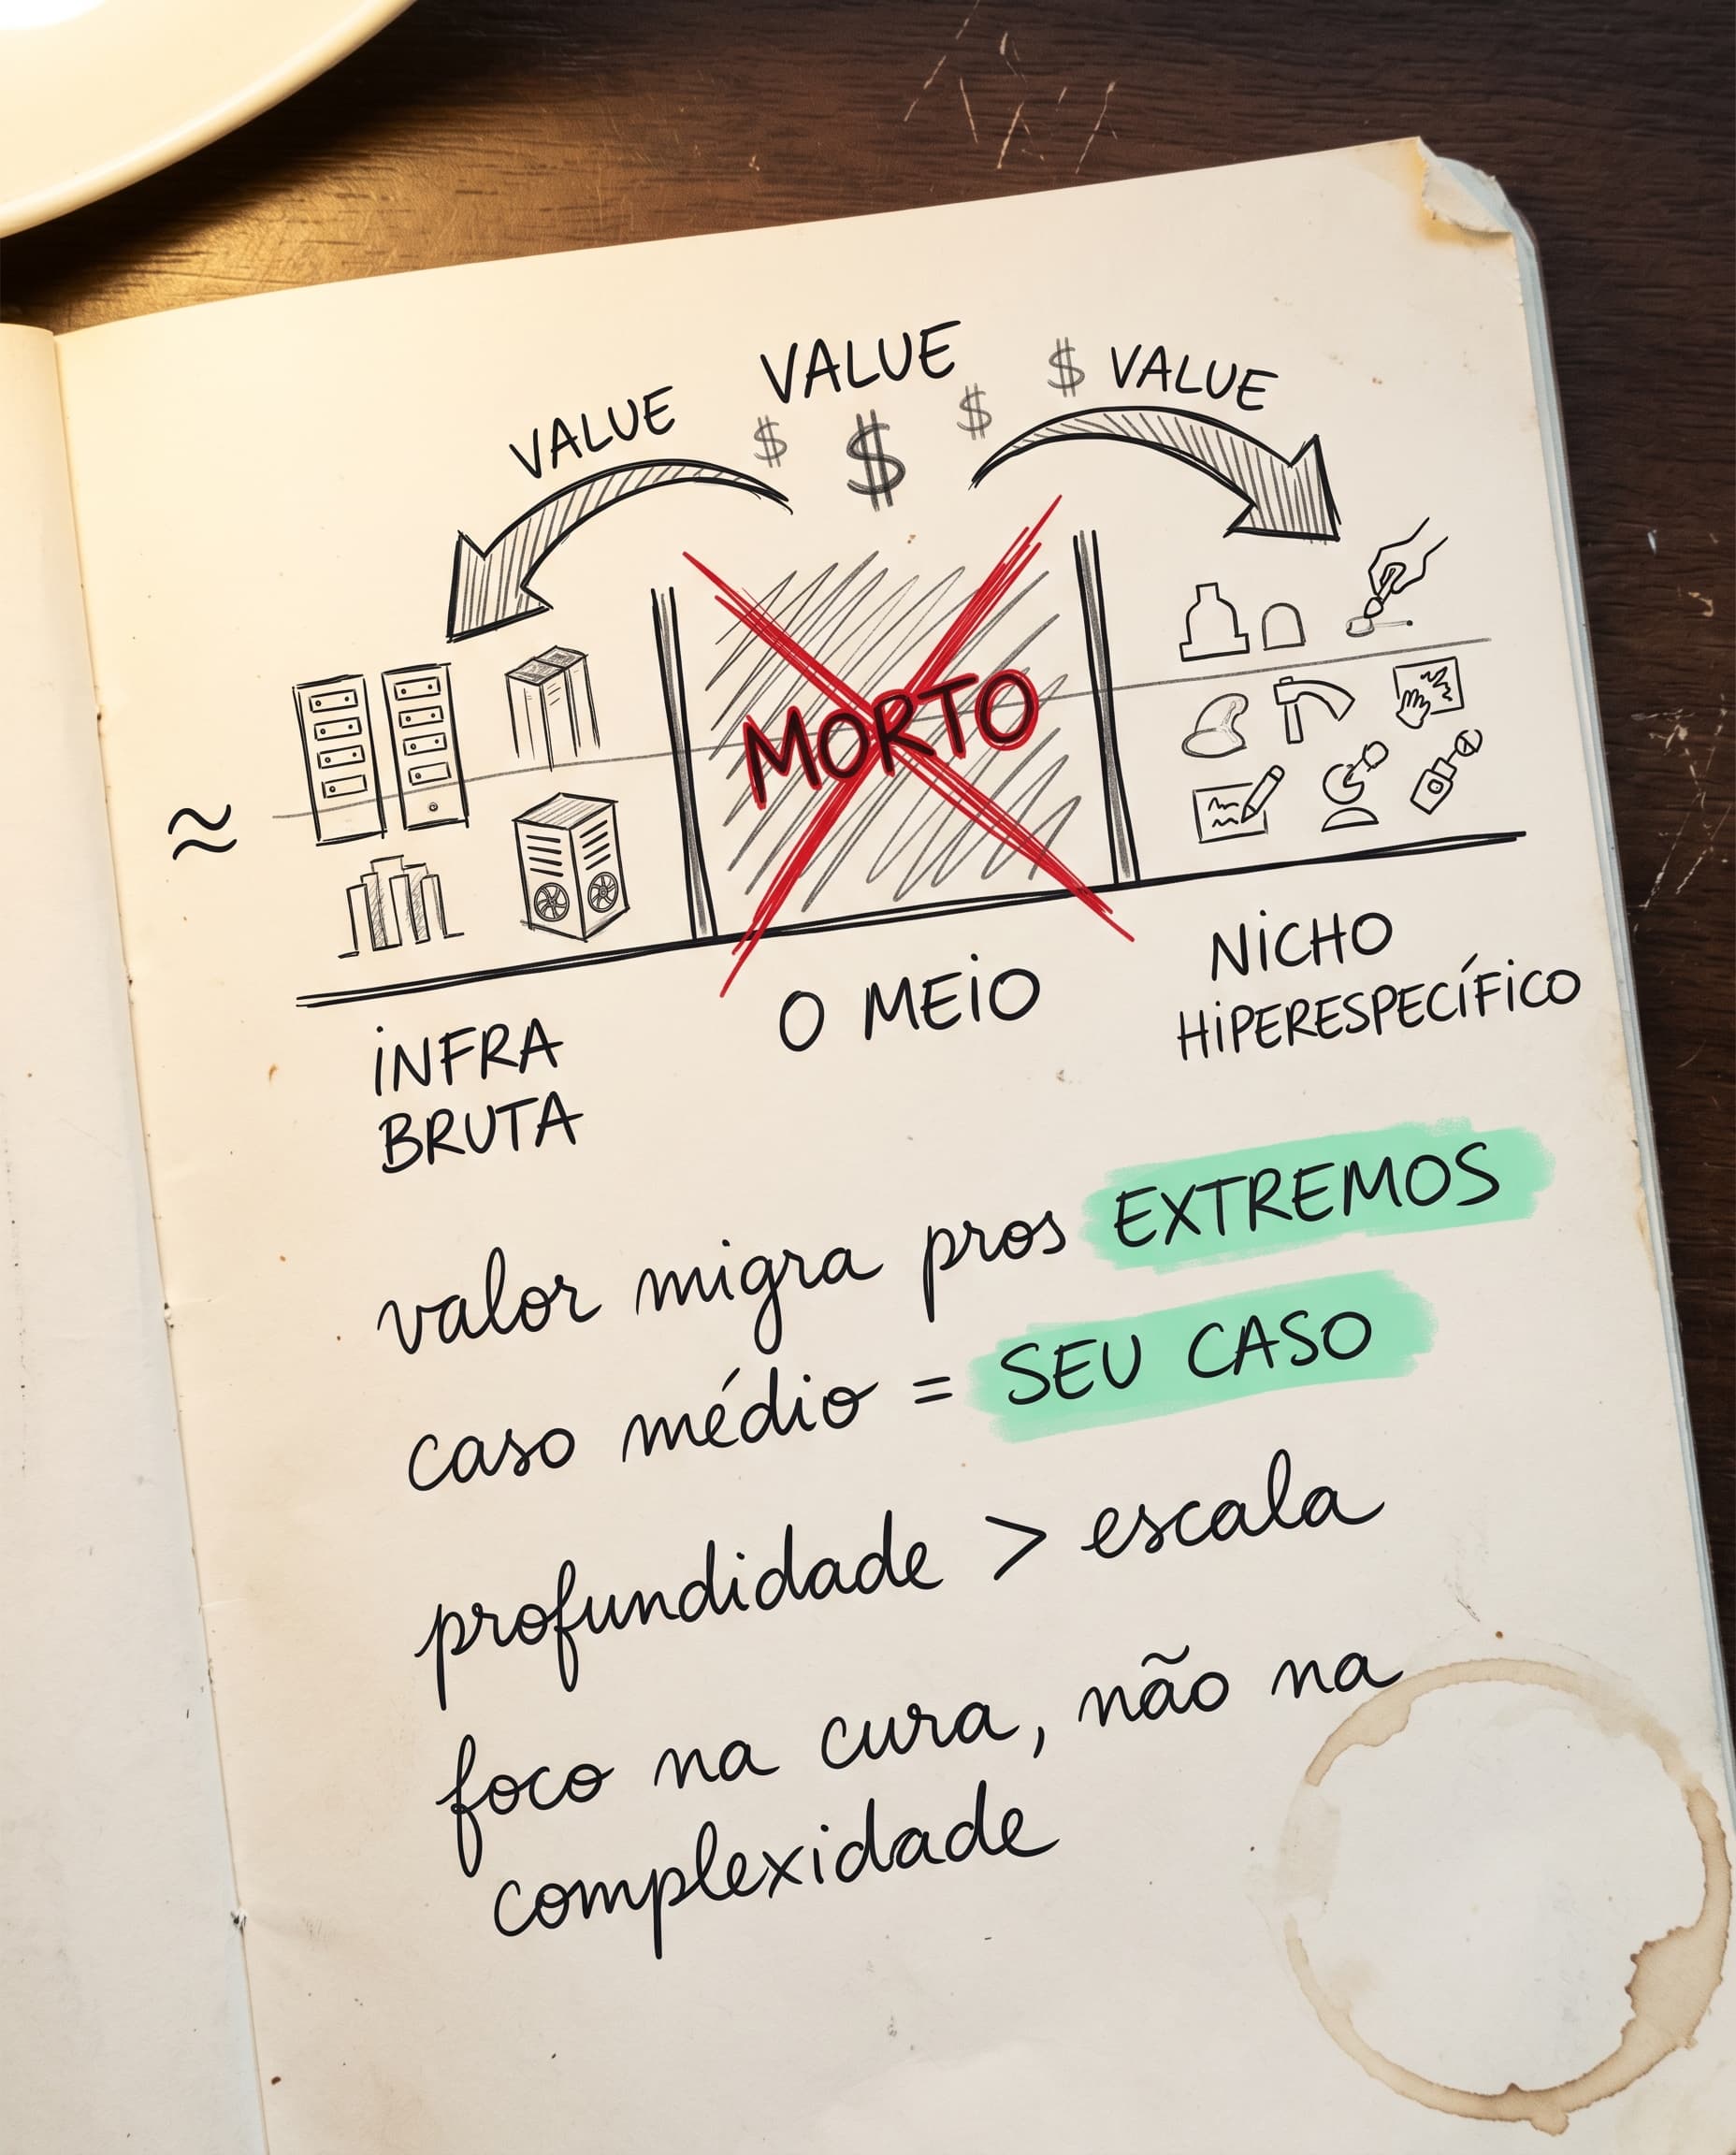 VALUE
$ $ $
VALUE
$ VALUE
MORTO
≈
INFRA
BRUTA
O MEIO
NICHO
HIPERESPECÍFICO
valor migra pros EXTREMOS
caso médio = SEU CASO
profundidade > escala
foco na cura, não na
complexidade